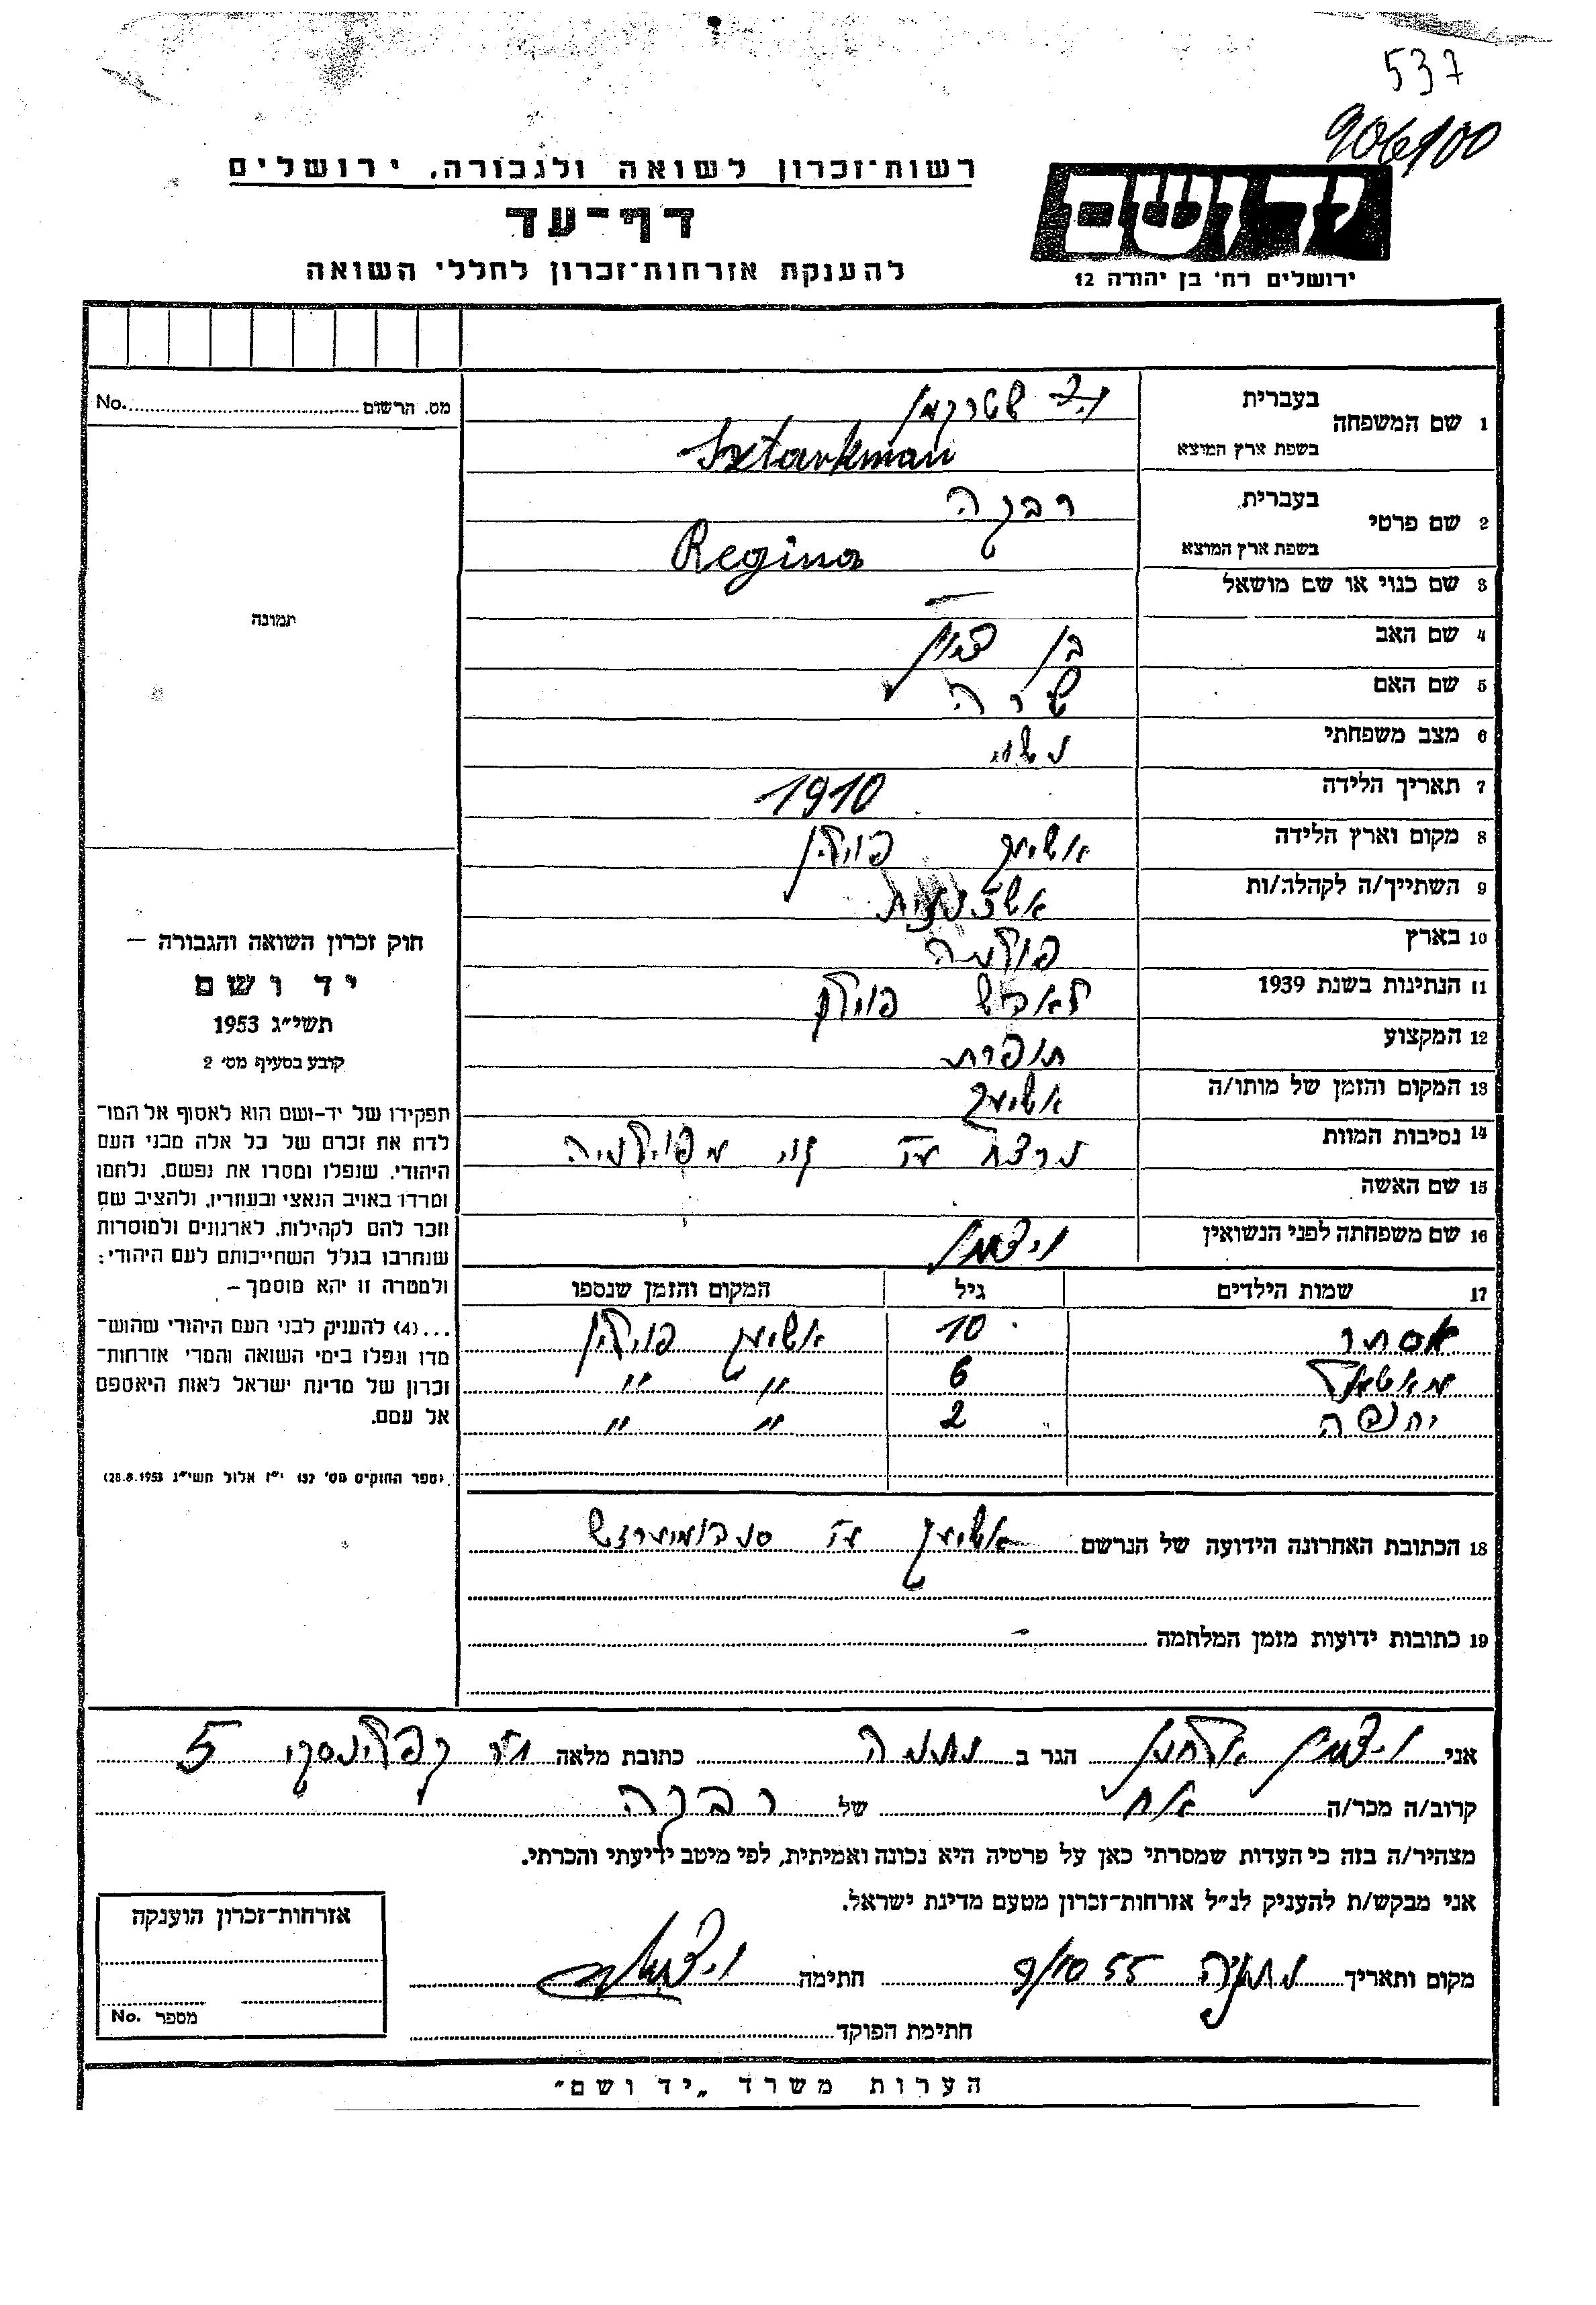 537
906/100
רשות־זכרון לשואה ולגבורה, ירושלים
דף־עד
להענקת אזרחות־זכרון לחללי השואה
יד ושם
ירושלים רח' בן יהודה 12
מס. הרשום No.
1 שם המשפחה בעברית שטרקמן
בשפת ארץ המוצא Sztarkman
2 שם פרטי בעברית רבקה
בשפת ארץ המוצא Regina
3 שם כנוי או שם מושאל —
4 שם האב בן ציון
5 שם האם שרה
6 מצב משפחתי נשוי
7 תאריך הלידה 1910
8 מקום וארץ הלידה פוילין
9 השתייך/ה לקהלה/ות
10 בארץ
11 הנתינות בשנת 1939
12 המקצוע תופרת
13 המקום והזמן של מותו/ה
14 נסיבות המוות נרצח
15 שם האשה
16 שם משפחתה לפני הנשואין
17 שמות הילדים גיל המקום והזמן שנספו
אסתר 10 פוילין
6 " "
2 " "
18 הכתובת האחרונה הידועה של הנרשם
19 כתובות ידועות מזמן המלחמה -
תמונה
חוק זכרון השואה והגבורה —
יד ושם
תשי״ג 1953
קובע בסעיף מס׳ 2
תפקידו של יד-ושם הוא לאסוף אל המו־
לדת את זכרם של כל אלה מבני העם
היהודי, שנפלו ומסרו את נפשם, נלחמו
ומרדו באויב הנאצי ובעוזריו, ולהציב שם
וזכר להם לקהילות, לארגונים ולמוסדות
שנחרבו בגלל השתייכותם לעם היהודי;
ולמטרה זו יהא מוסמך –
...(4) להעניק לבני העם היהודי שהוש־
מדו ונפלו בימי השואה והמרי אזרחות־
זכרון של מדינת ישראל לאות היאספם
אל עמם.
(ספר החוקים מס׳ 132 י״ז אלול תשי״ג 28.8.1953)
אני הגר ב נתניה כתובת מלאה 5
קרוב/ה מכר/ה אח של רבקה
מצהיר/ה בזה כי העדות שמסרתי כאן על פרטיה היא נכונה ואמיתית, לפי מיטב ידיעתי והכרתי.
אני מבקש/ת להעניק לנ״ל אזרחות־זכרון מטעם מדינת ישראל.
מקום ותאריך נתניה 9/10 55 חתימה
חתימת הפוקד
אזרחות־זכרון הוענקה
מספר No.
הערות משרד „יד ושם״